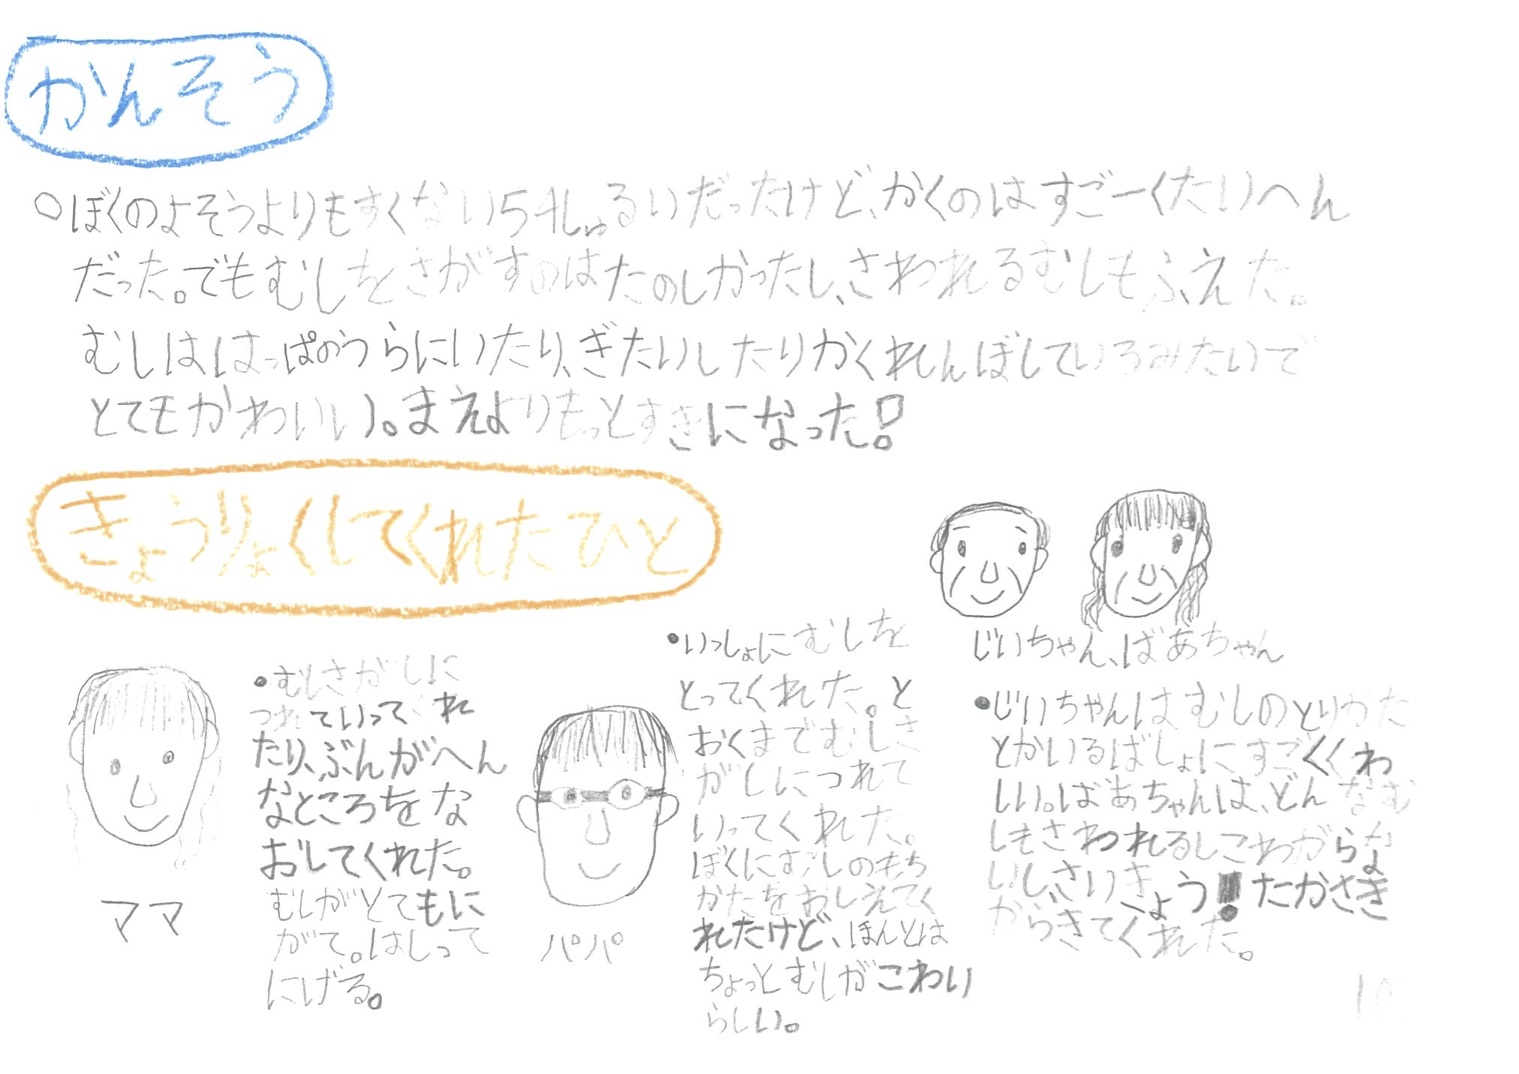 かんそう
○ぼくのよそうよりもすくない54しゅるいだったけど、かくのはすごーくたいへん
だった。でもむしをさがすのはたのしかったし、さわれるむしもふえた。
むしははっぱのうらにいたり、ぎたいしたりかくれんぼしているみたいで
とてもかわいい。まえよりもっとすきになった!
きょうりょくしてくれたひと
•むしさがしに
つれていってくれ
たり、ぶんがへん
なところをな
おしてくれた。
むしがとてもに
がて。はしって
にげる。
ママ
•いっしょにむしを
とってくれた。と
おくまでむしさ
がしにつれて
いってくれた。
ぼくにむしのもち
かたをおしえてく
れたけど、ほんとは
ちょっとむしがこわい
らしい。
パパ
じいちゃん、ばあちゃん
•じいちゃんはむしのとりかた
とかいるばしょにすごくくわ
しい。ばあちゃんは、どんなむ
しもさわれるしこわがらな
いし、さいきょう!たかさき
からきてくれた。
10